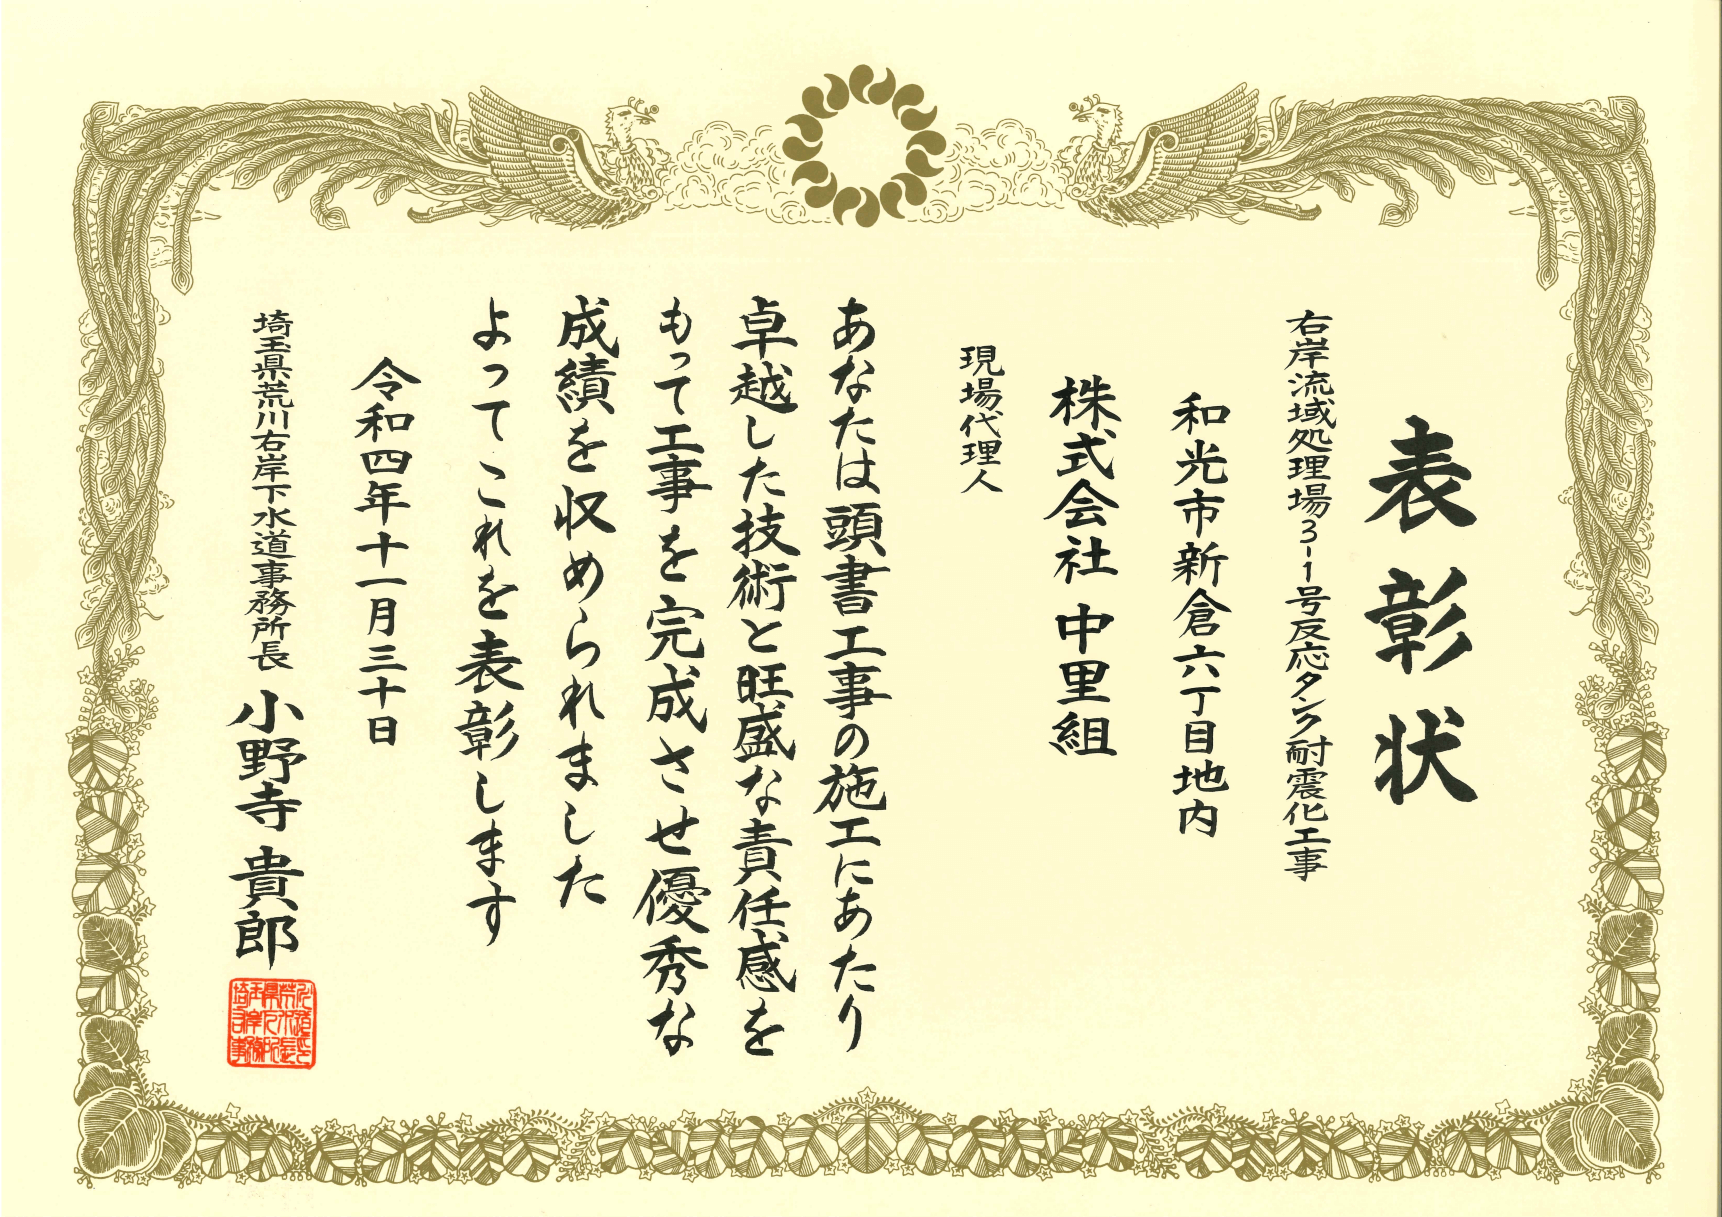 表彰状
右岸流域処理場3-1号反応タンク耐震化工事
和光市新倉六丁目地内
株式会社 中里組
現場代理人
あなたは頭書工事の施工にあたり
卓越した技術と旺盛な責任感を
もって工事を完成させ優秀な
成績を収められました
よってこれを表彰します
令和四年十一月三十日
埼玉県荒川右岸下水道事務所長 小野寺 貴郎